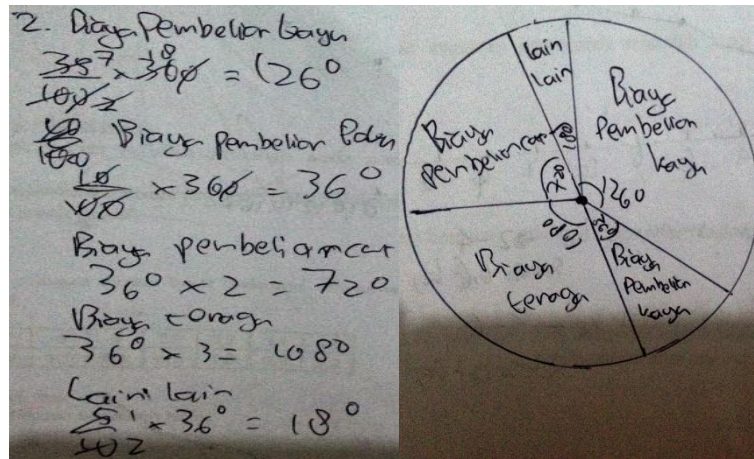 2. Biaya Pembelian kayu
35 7/100 2 x 36 18 0 = 126°
10/100 Biaya pembelian
10/100 x 360 = 36°
Biaya pembelian cat
36° x 2 = 72°
Biaya tenaga
36° x 3 = 108°
Lain lain
5 1/10 2 x 36° = 18°
lain
lain
Biaya
Pembelian
kayu
Biaya
pembelian cat
18°
72°
126°
108°
36°
Biaya
tenaga
Biaya
Pembelian
kayu